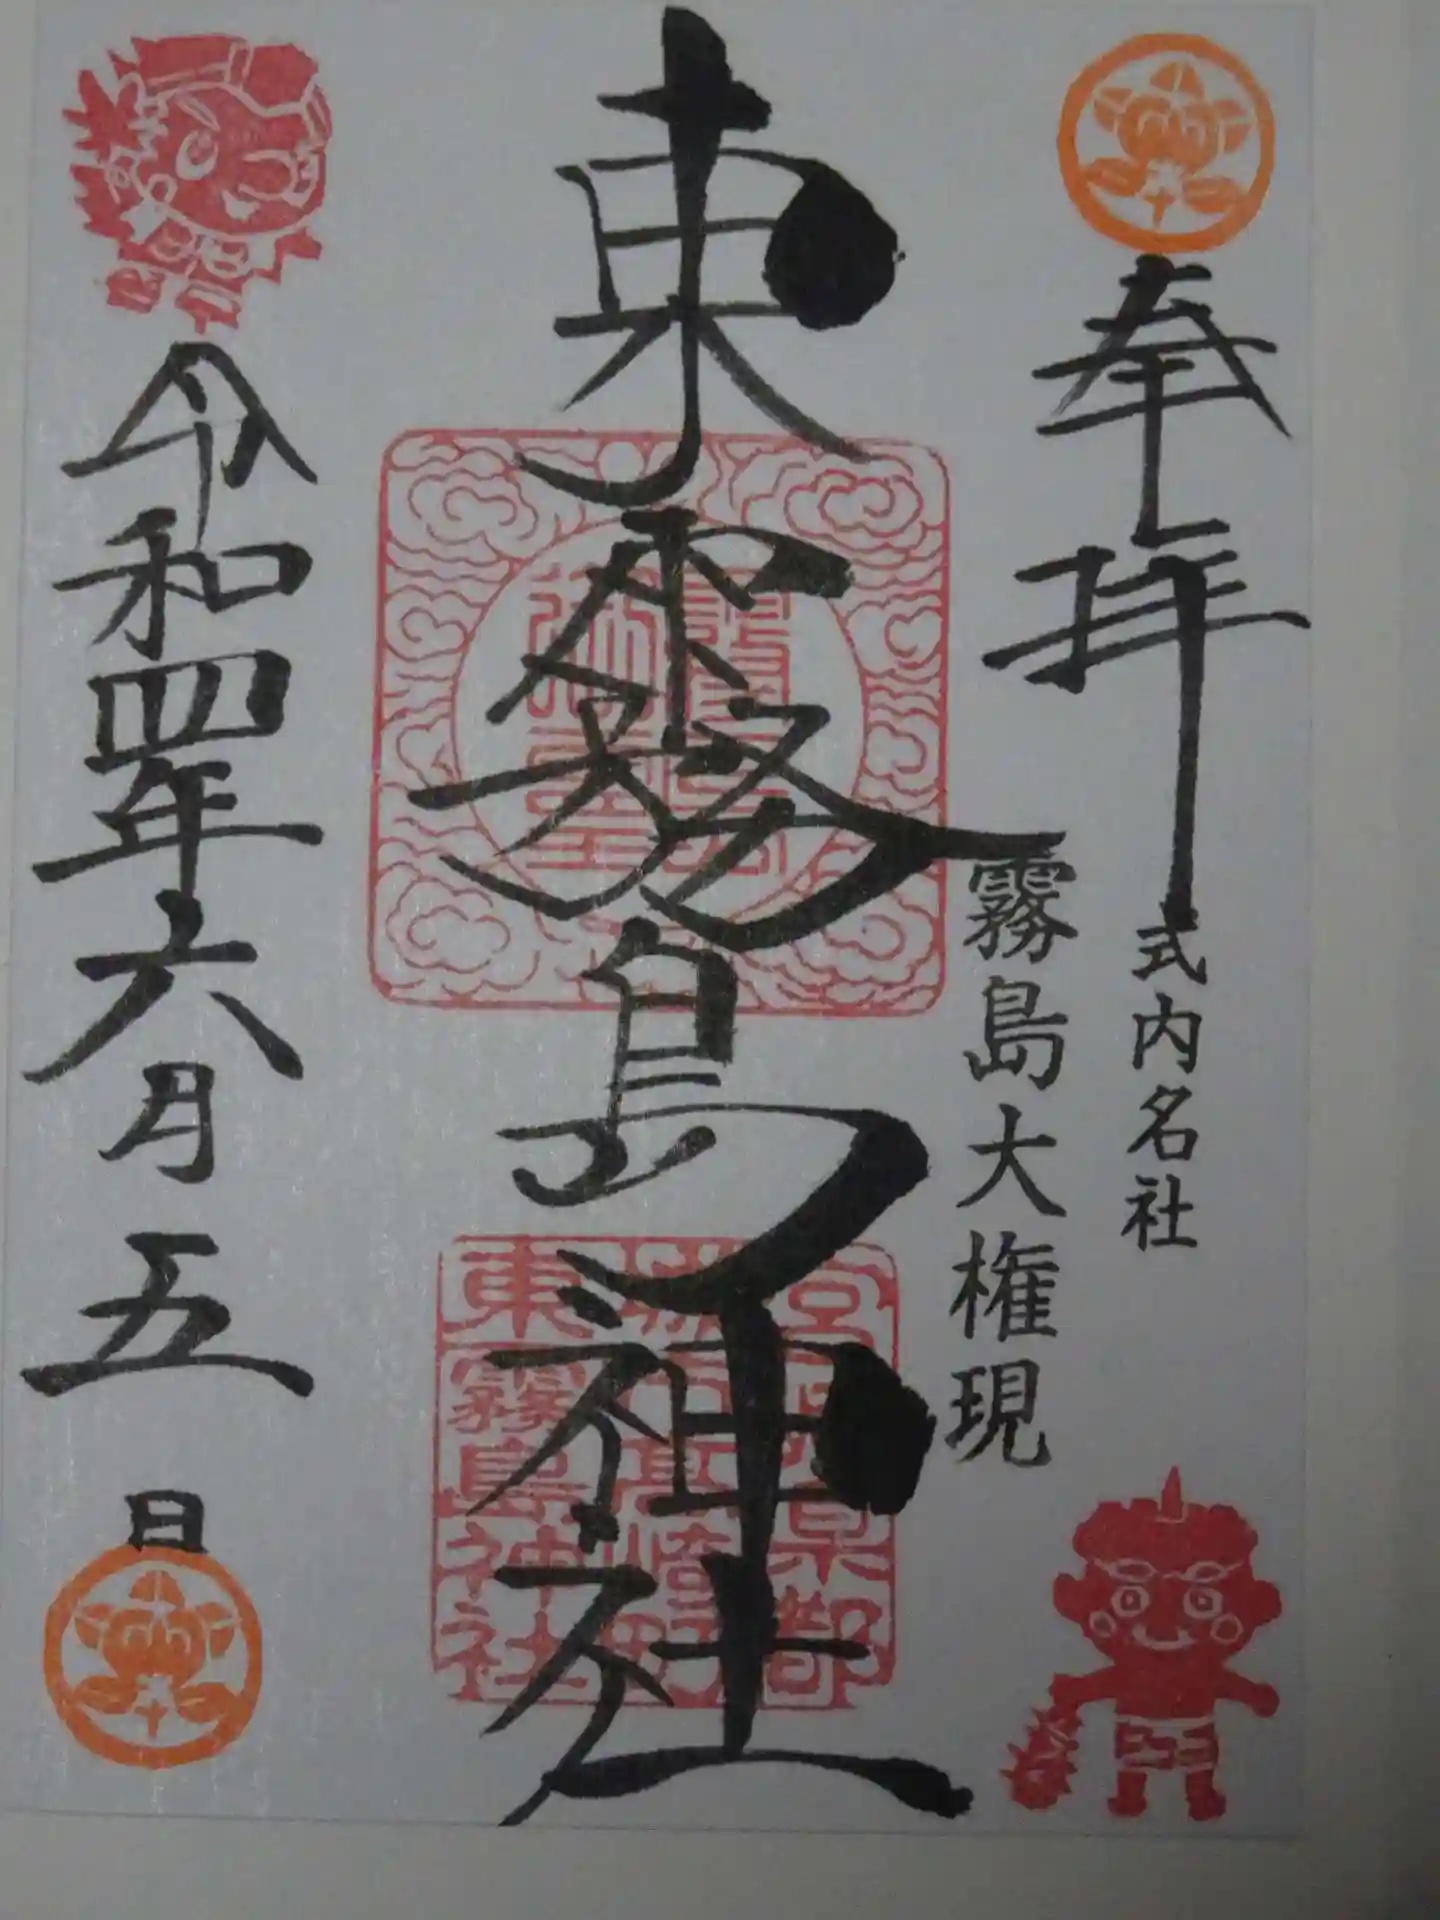 奉拝
式内名社
霧島大権現
東霧島神社
宮崎県都
城市高崎町
東霧島神社
令和四年六月五日